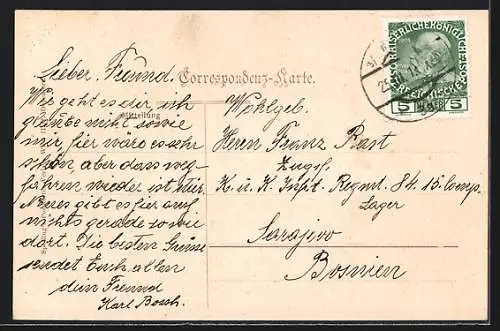 Correspondenz-Karte.
Mitteilung
Lieber Freund
Wie geht es dir, ich
glaube nicht so wie
mir, hier ware es sehr
schön, aber dass weg-
fahren wieder ist mir
Neues gibt es hier auf
nichts gerade so wie
dort. Die besten Grüsse
sendet Euch allen
dein Freund
Karl Bosch.
Wohlgeb.
Herrn Franz Rast
Zugsf.
K. u. K. Inft. Regmt. 84. 15. Comp.
Lager
Sarajevo
Bosnien
KAISERLICHE KÖNIGLICHE
5 HELLER 5